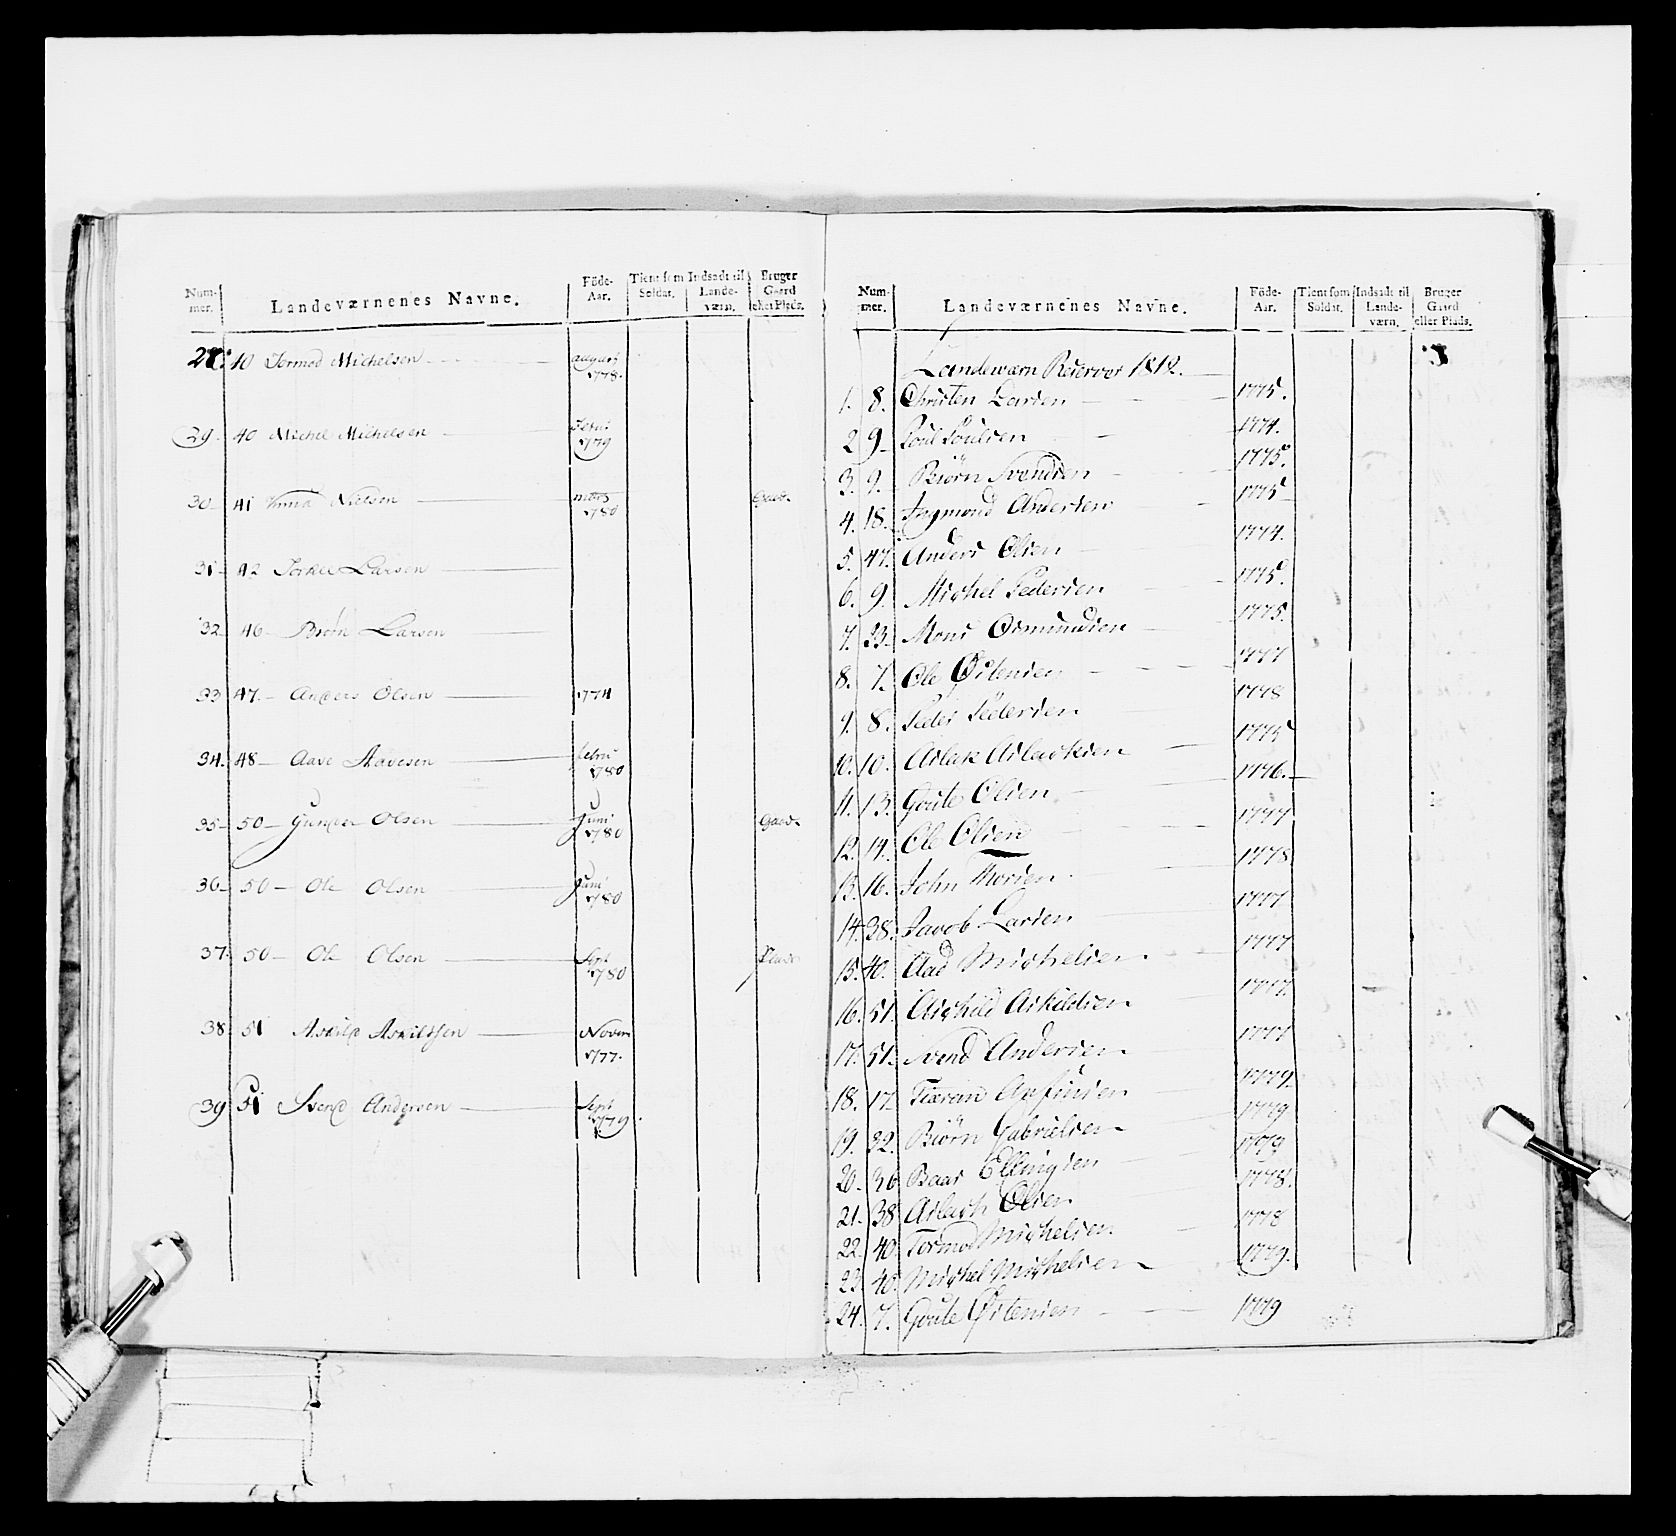 Num-mer. Landeværnenes Navne. Föde-Aar. Tient som Soldat. Indsadt til Lande-værn. Bruger Gaard eller Plads.
28. 40 Tormod Michelsen august 1778.
29. 40 Michel Michelsen 1779
30. 41 Nielsen marts 1780 Gaard
31. 42 Torkel Larsen
32. 46 Biørn Larsen
33. 47. Anders Olsen 1774
34. 48 Aave Aavesen febru 1780
35. 50 Gunder Olsen Juni 1780 Gaard
36. 50 Ole Olsen Juni 1780
37. 50 Ole Olsen Sept 1780 Plads
38. 51 Askild Askildsen Novem 1777.
39 51 Svend Andersen Sept 1779.
Num-mer. Landeværnenes Navne. Föde-Aar. Tient som Soldat. Indsadt til Lande-værn. Bruger Gaard eller Plads.
Landeværn Reserver 1812.
1. 8. Christen Larsen 1775.
2 9 Poul Poulsen 1774.
3. 9. Biørn Svendsen 1775.
4. 18. Ingmond Andersen 1775
5. 47. Anders Olsen 1774.
6. 9. Michel Pedersen 1775.
7. 23. Mons Osmundsen 1775.
8. 7. Ole Østensen 1777
9. 8. Peder Pedersen 1778
10. 10. Aslak Aslachsen 1775
11. 13. Goute Olsen 1776.
12. 14. Ole Olsen 1777
13. 16. John Thorsen 1778
14. 38. Jacob Larsen 1777
15. 40. Aad Michelsen 1777
16. 51. Aschild Askildsen 1777.
17. 51. Svend Andersen 1777
18. 17. Tiæran Anfinsen 1779.
19. 32. Biørn Gabrielsen 1779
20. 36 Baar Ellingsen 1779
21. 38 Aslach Olsen 1778.
22. 40. Tormod Michelsen. 1778
23. 40. Michel Michelsen 1779.
24. 7. Goute Østensen 1779